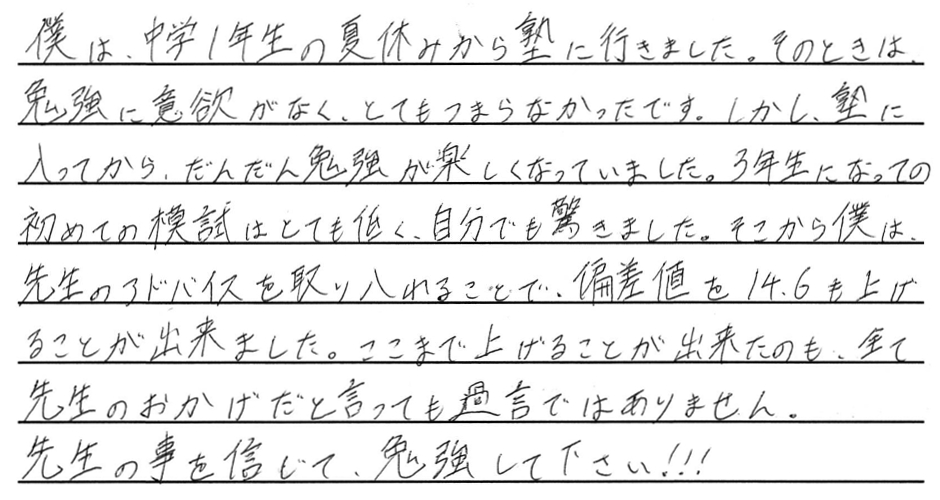 僕は、中学1年生の夏休みから塾に行きました。そのときは、
勉強に意欲がなく、とてもつまらなかったです。しかし、塾に
入ってから、だんだん勉強が楽しくなっていました。3年生になっての
初めての模試はとても低く、自分でも驚きました。そこから僕は、
先生のアドバイスを取り入れることで、偏差値を14.6も上げ
ることが出来ました。ここまで上げることが出来たのも、全て
先生のおかげだと言っても過言ではありません。
先生の事を信じて、勉強して下さい!!!